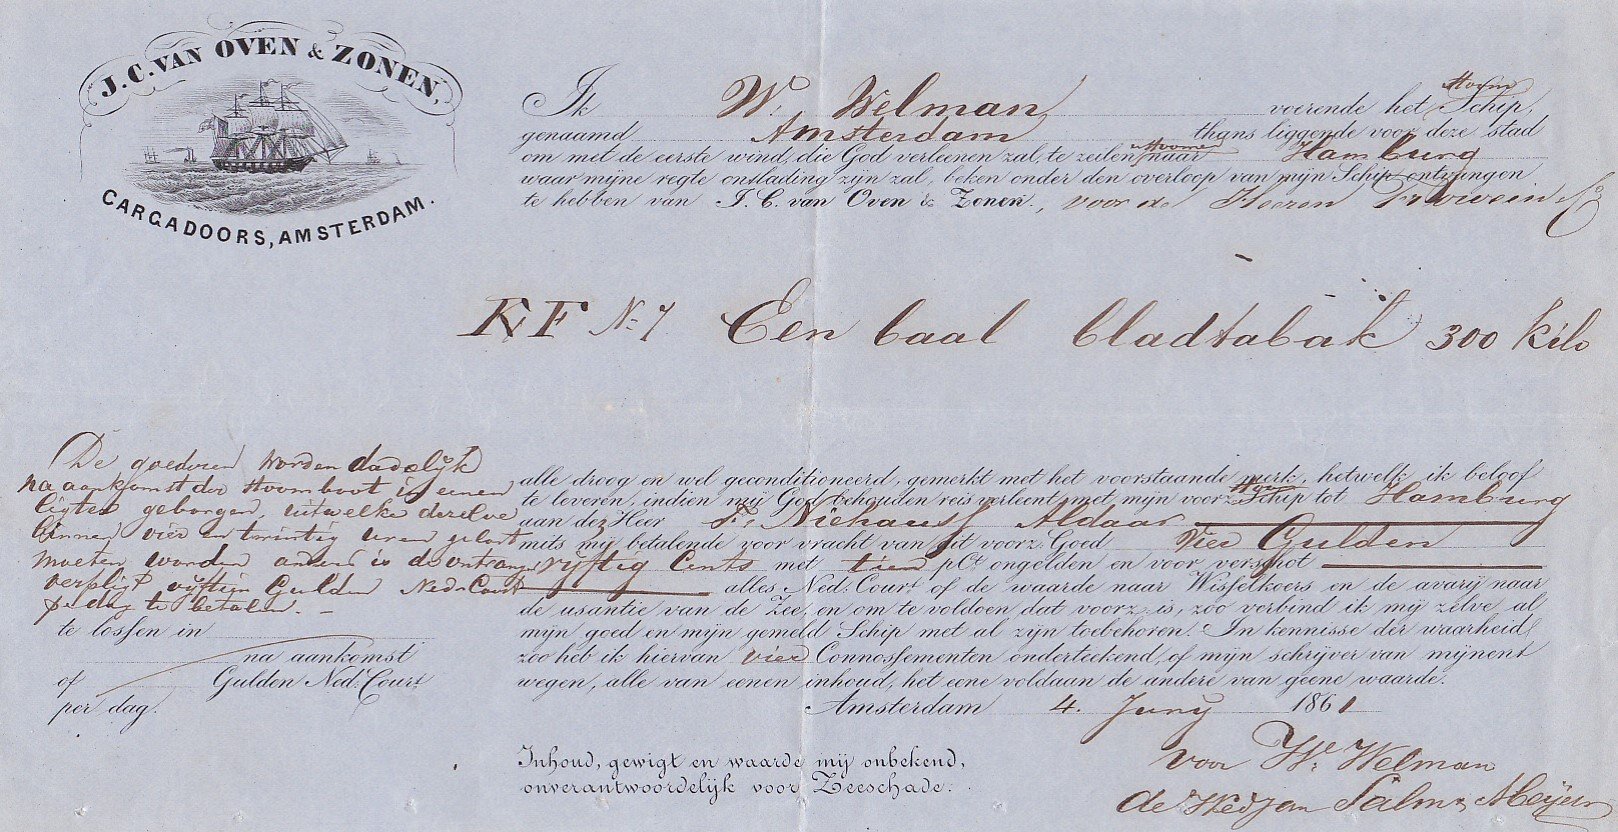 J. C. VAN OVEN & ZONEN,
CARGADOORS, AMSTERDAM.
Ik W. Welman voerende het Stoom Schip,
genaamd Amsterdam thans liggende voor deze stad
om met de eerste wind, die God verleenen zal, te zeilen Stoomen naar Hamburg
waar mijne regte ontslading zijn zal, beken onder den overloop van mijn Schip ontvangen
te hebben van J. C. van Oven & Zonen., voor de Heeren
KF No 7 Een baal bladtabak 300 kilo
De goederen worden dadelijk
na aankomst der Stoomboot in eenen
ligter geborgen, uit welke dezelve
binnen vier en twintig uren gelost
moeten worden anders is de ontvanger
verpligt vijftien Gulden Ned. Court
per dag te betalen. –
te lossen in
na aankomst
of Gulden Ned. Court
per dag.
alle droog en wel geconditioneerd, gemerkt met het voorstaande merk, hetwelk ik beloof
te leveren, indien mij God behouden reis verleent, met mijn voorz. Schip tot Hamburg
aan den Heer Niehaus Aldaar
mits mij betalende voor vracht van dit voorz. Goed Vier Gulden
vyftig Cents met tien pCt. ongelden en voor verschot
alles Ned. Court of de waarde naar Wisselkoers en de avarij naar
de usantie van de Zee, en om te voldoen dat voorz. is, zoo verbind ik mij zelve, al
mijn goed en mijn gemeld Schip met al zijn toebehoren. In kennisse der waarheid
zoo heb ik hiervan vier Connossementen onderteekend, of mijn schrijver van mijnent
wegen, alle van eenen inhoud, het eene voldaan de andere van geene waarde.
Amsterdam 4. Juny 1861
Inhoud, gewigt en waarde mij onbekend,
onverantwoordelijk voor Zeeschade.
voor W. Welman
de Wed Jan Salm & Meijer